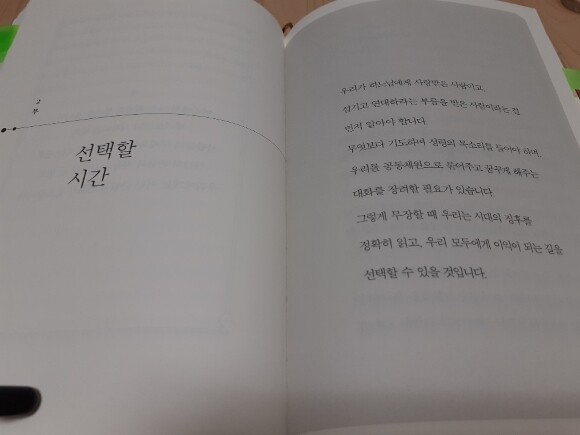 2부
선택할
시간
우리가 하느님에게 사랑받은 사람이고,
섬기고 연대하라는 부름을 받은 사람이라는 걸
먼저 알아야 합니다.
무엇보다 기도하며 성령의 목소리를 들어야 하며,
우리를 공동체원으로 묶어주고 꿈꾸게 해주는
대화를 장려할 필요가 있습니다.
그렇게 무장할 때 우리는 시대의 징후를
정확히 읽고, 우리 모두에게 이익이 되는 길을
선택할 수 있을 것입니다.